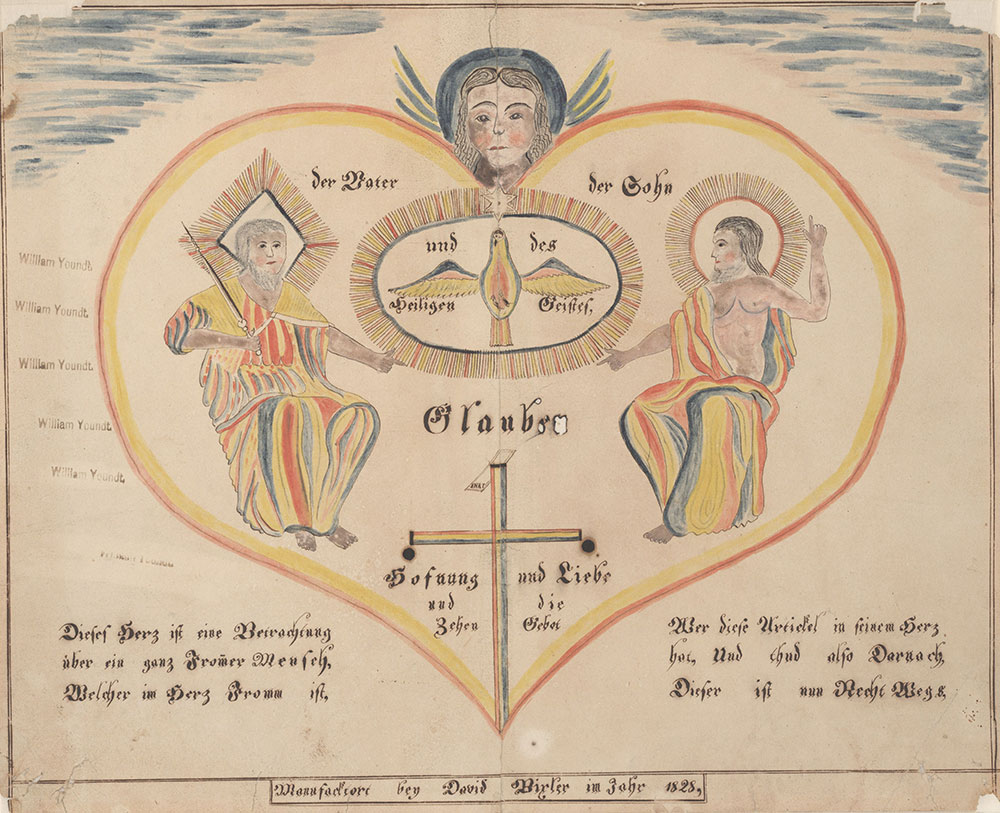 der Vater der Sohn
und des
Heiligen Geistes,
Glauben
INRI
Hofnung und Liebe
und die
Zehen Gebot
William Youndt.
William Youndt.
William Youndt.
William Youndt.
William Youndt.
William Youndt.
Dieses Herz ist eine Betrachtung
über ein ganz From̅er Mensch,
Welcher im Herz Fromm ist,
Wer diese Artickel in seinem Herz
hat, Und thud also Darnach,
Dieser ist nun Recht Wegs
Manufacktort bey David Bixler im Jahr 1828,